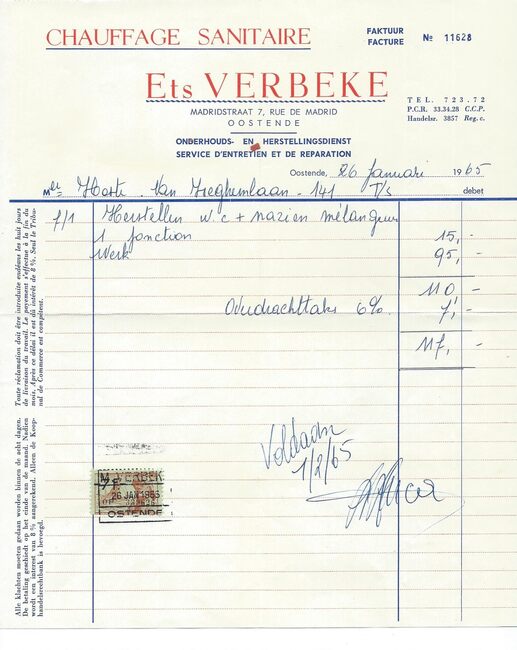 CHAUFFAGE SANITAIRE
FAKTUUR
FACTURE
№ 11628
Ets VERBEKE
MADRIDSTRAAT 7, RUE DE MADRID
OOSTENDE
TEL. 723.72
P.C.R. 33.34.28 C.C.P.
Handelsr. 3857 Reg. c.
ONDERHOUDS- EN HERSTELLINGSDIENST
SERVICE D'ENTRETIEN ET DE REPARATION
Oostende, 26 Januari 1965
Mer Van Iseghemlaan - 141 T/s debet
7/1 Herstellen w.c + nazien mélangeur
1 jonction 15,-
Werk 95,-
110,-
Overdrachttaks 6% 7,-
117,-
Voldaan
1/2/65
M. VERBEK
26 JAN 1965
OOSTENDE
Toute réclamation doit être introduite endéans les huit jours
de livraison du travail. Le payement s'effectue à la fin du
mois. Après ce délai il est dû intérêt de 8%. Seul le Tribu-
nal de Commerce est compétent.
Alle klachten moeten gedaan worden binnen de acht dagen.
De betaling geschiedt op het einde van de maand. Nadien
wordt een interest van 8% aangerekend. Alleen de Koop-
handelsrechtbank is bevoegd.